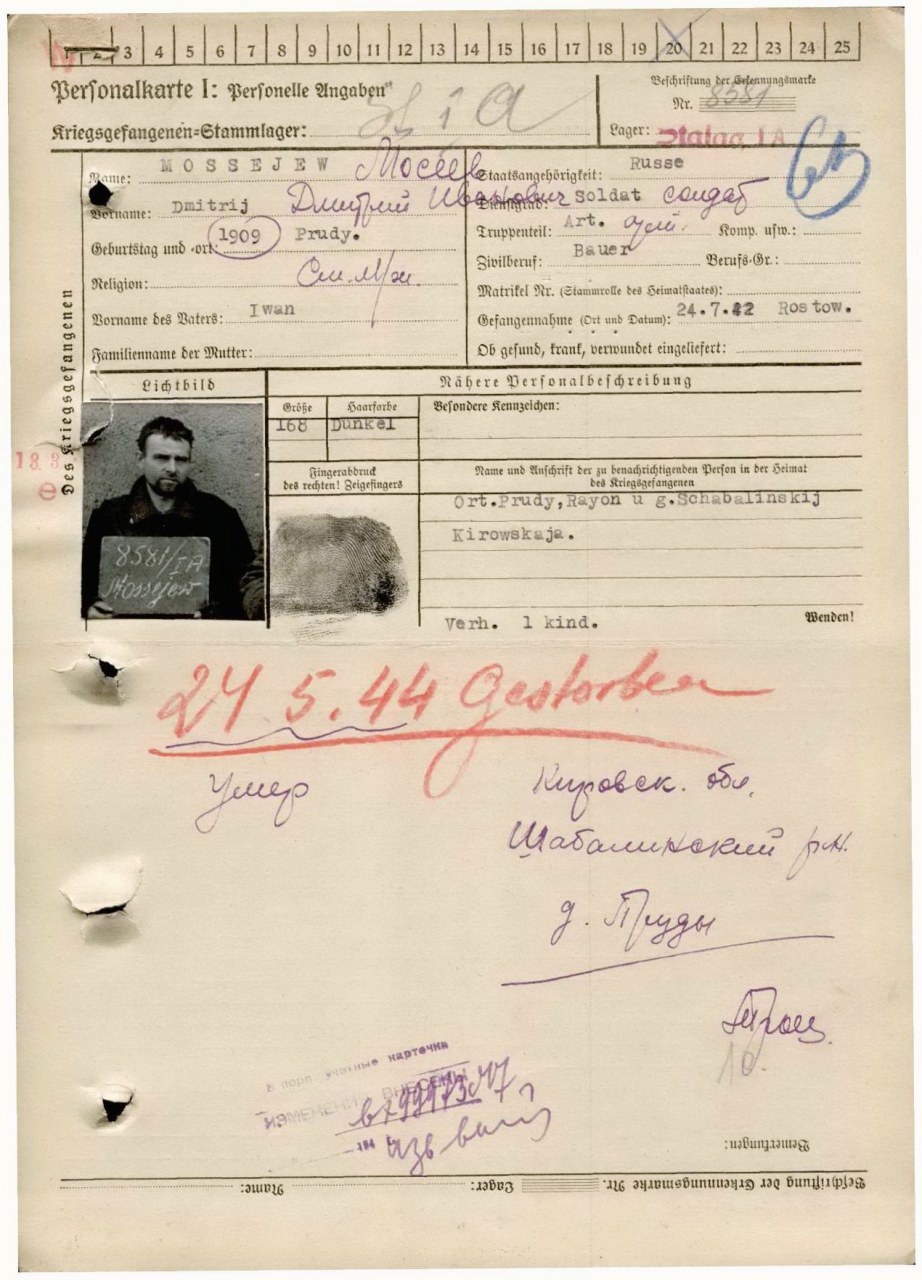 3 4 5 6 7 8 9 10 11 12 13 14 15 16 17 18 19 20 21 22 23 24 25
Personalkarte I: Personelle Angaben
Beschriftung der Erkennungsmarke
Nr. 8581
Kriegsgefangenen-Stammlager: St I A
Lager: Stalag I A
Des Kriegsgefangenen
Name: MOSSEJEW Мосеев
Staatsangehörigkeit: Russe
Vorname: Dmitrij Дмитрий Иванович
Dienstgrad: Soldat солдат
Geburtstag und -ort: 1909 Prudy.
Truppenteil: Art. Komp. usw.:
Zivilberuf: Bauer Berufs-Gr.:
Religion:
Matrikel Nr. (Stammrolle des Heimatstaates):
Vorname des Vaters: Iwan
Gefangennahme (Ort und Datum): 24.7.42 Rostow.
Familienname der Mutter:
Ob gesund, krank, verwundet eingeliefert:
Lichtbild
Nähere Personalbeschreibung
Größe Haarfarbe Besondere Kennzeichen:
168 Dunkel
Fingerabdruck
des rechten! Zeigefingers
Name und Anschrift der zu benachrichtigenden Person in der Heimat
des Kriegsgefangenen
Ort.Prudy,Rayon u g.Schabalinskij
Kirowskaja.
8581/IA
Mossejew
Verh. 1 kind.
Wenden!
24.5.44 Gestorben
Умер
Кировск. обл.
Шабалинский р-н.
д. Пруды
учетные карточка
ВНЕСЕНЫ
Bemerkungen:
Beschriftung der Erkennungsmarke Nr. Lager: Name: